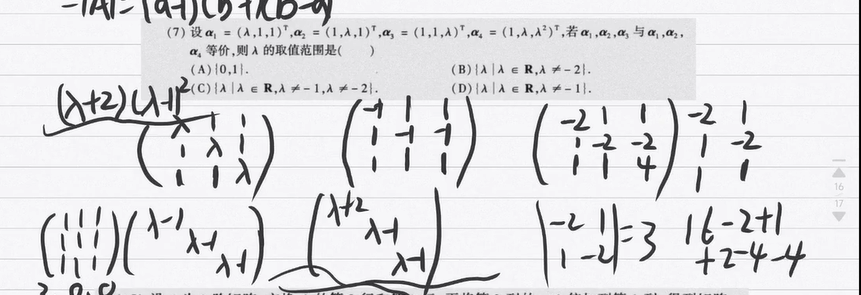 =|A|=(a-1)(b+
(7) 设 α₁ = (λ,1,1)ᵀ,α₂ = (1,λ,1)ᵀ,α₃ = (1,1,λ)ᵀ,α₄ = (1,λ,λ²)ᵀ,若 α₁,α₂,α₃ 与 α₁,α₂,
α₄ 等价,则 λ 的取值范围是(  )
(A){0,1}. (B){λ | λ ∈ R,λ ≠ -2}.
(C){λ | λ ∈ R,λ ≠ -1,λ ≠ -2}. (D){λ | λ ∈ R,λ ≠ -1}.
(λ+2)(λ-1)²
λ 1 1 -1 1 1 -2 1 1 -2 1
1 λ 1 1 -1 -1 1 -2 -2 1 -2
1 1 λ 1 1 1 1 1 4 1 1
1 1 1 λ-1 λ+2 -2 1 16-2+1
1 1 1 λ-1 λ-1 1 -2 =3 +2-4-4
1 1 1 λ-1 λ-1
16
17